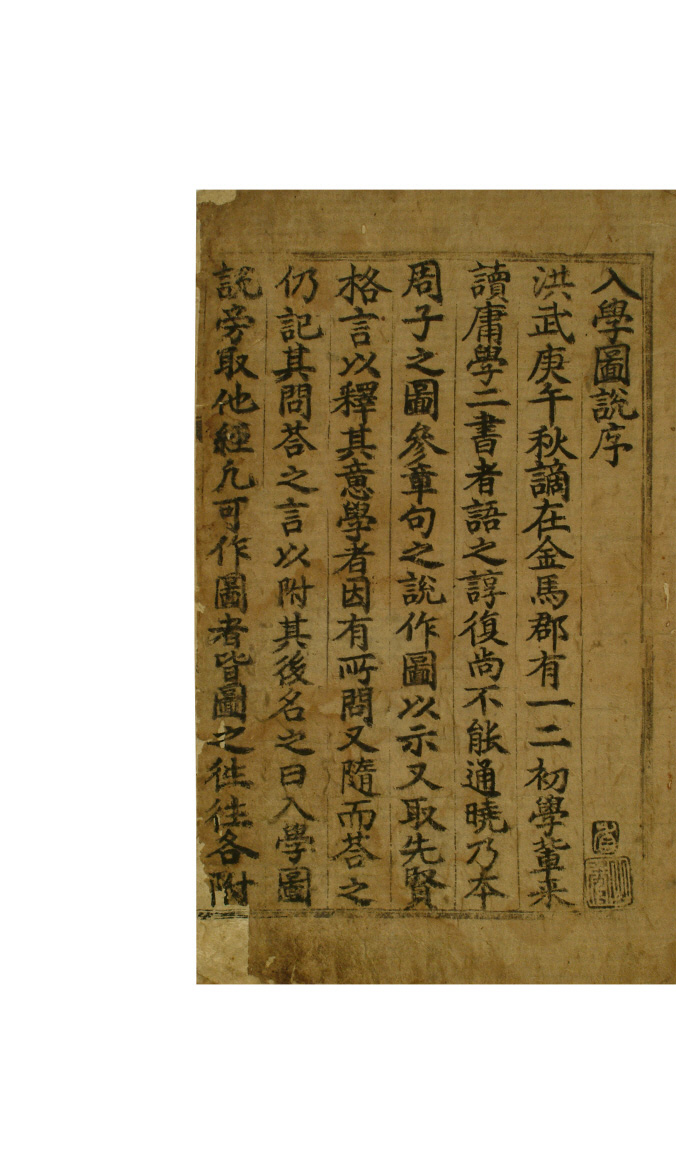 入學圖說序
洪武庚午秋謫在金馬郡有一二初學軰来
讀庸學二書者語之諄復尚不能通曉乃本
周子之圖叅章句之說作圖以示又取先賢
格言以釋其意學者因有所問又隨而荅之
仍記其問荅之言以附其後名之曰入學圖
說旁取他經凢可作圖者皆圖之徃徃各附